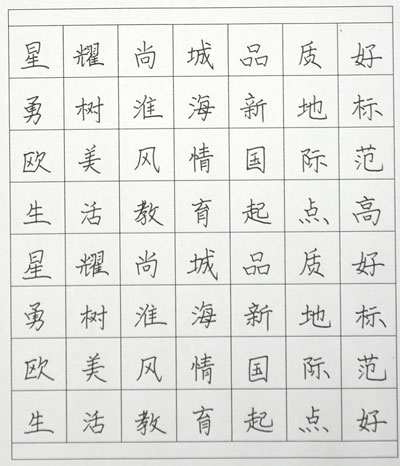 星耀尚城品质好
勇树淮海新地标
欧美风情国际范
生活教育起点高
星耀尚城品质好
勇树淮海新地标
欧美风情国际范
生活教育起点好